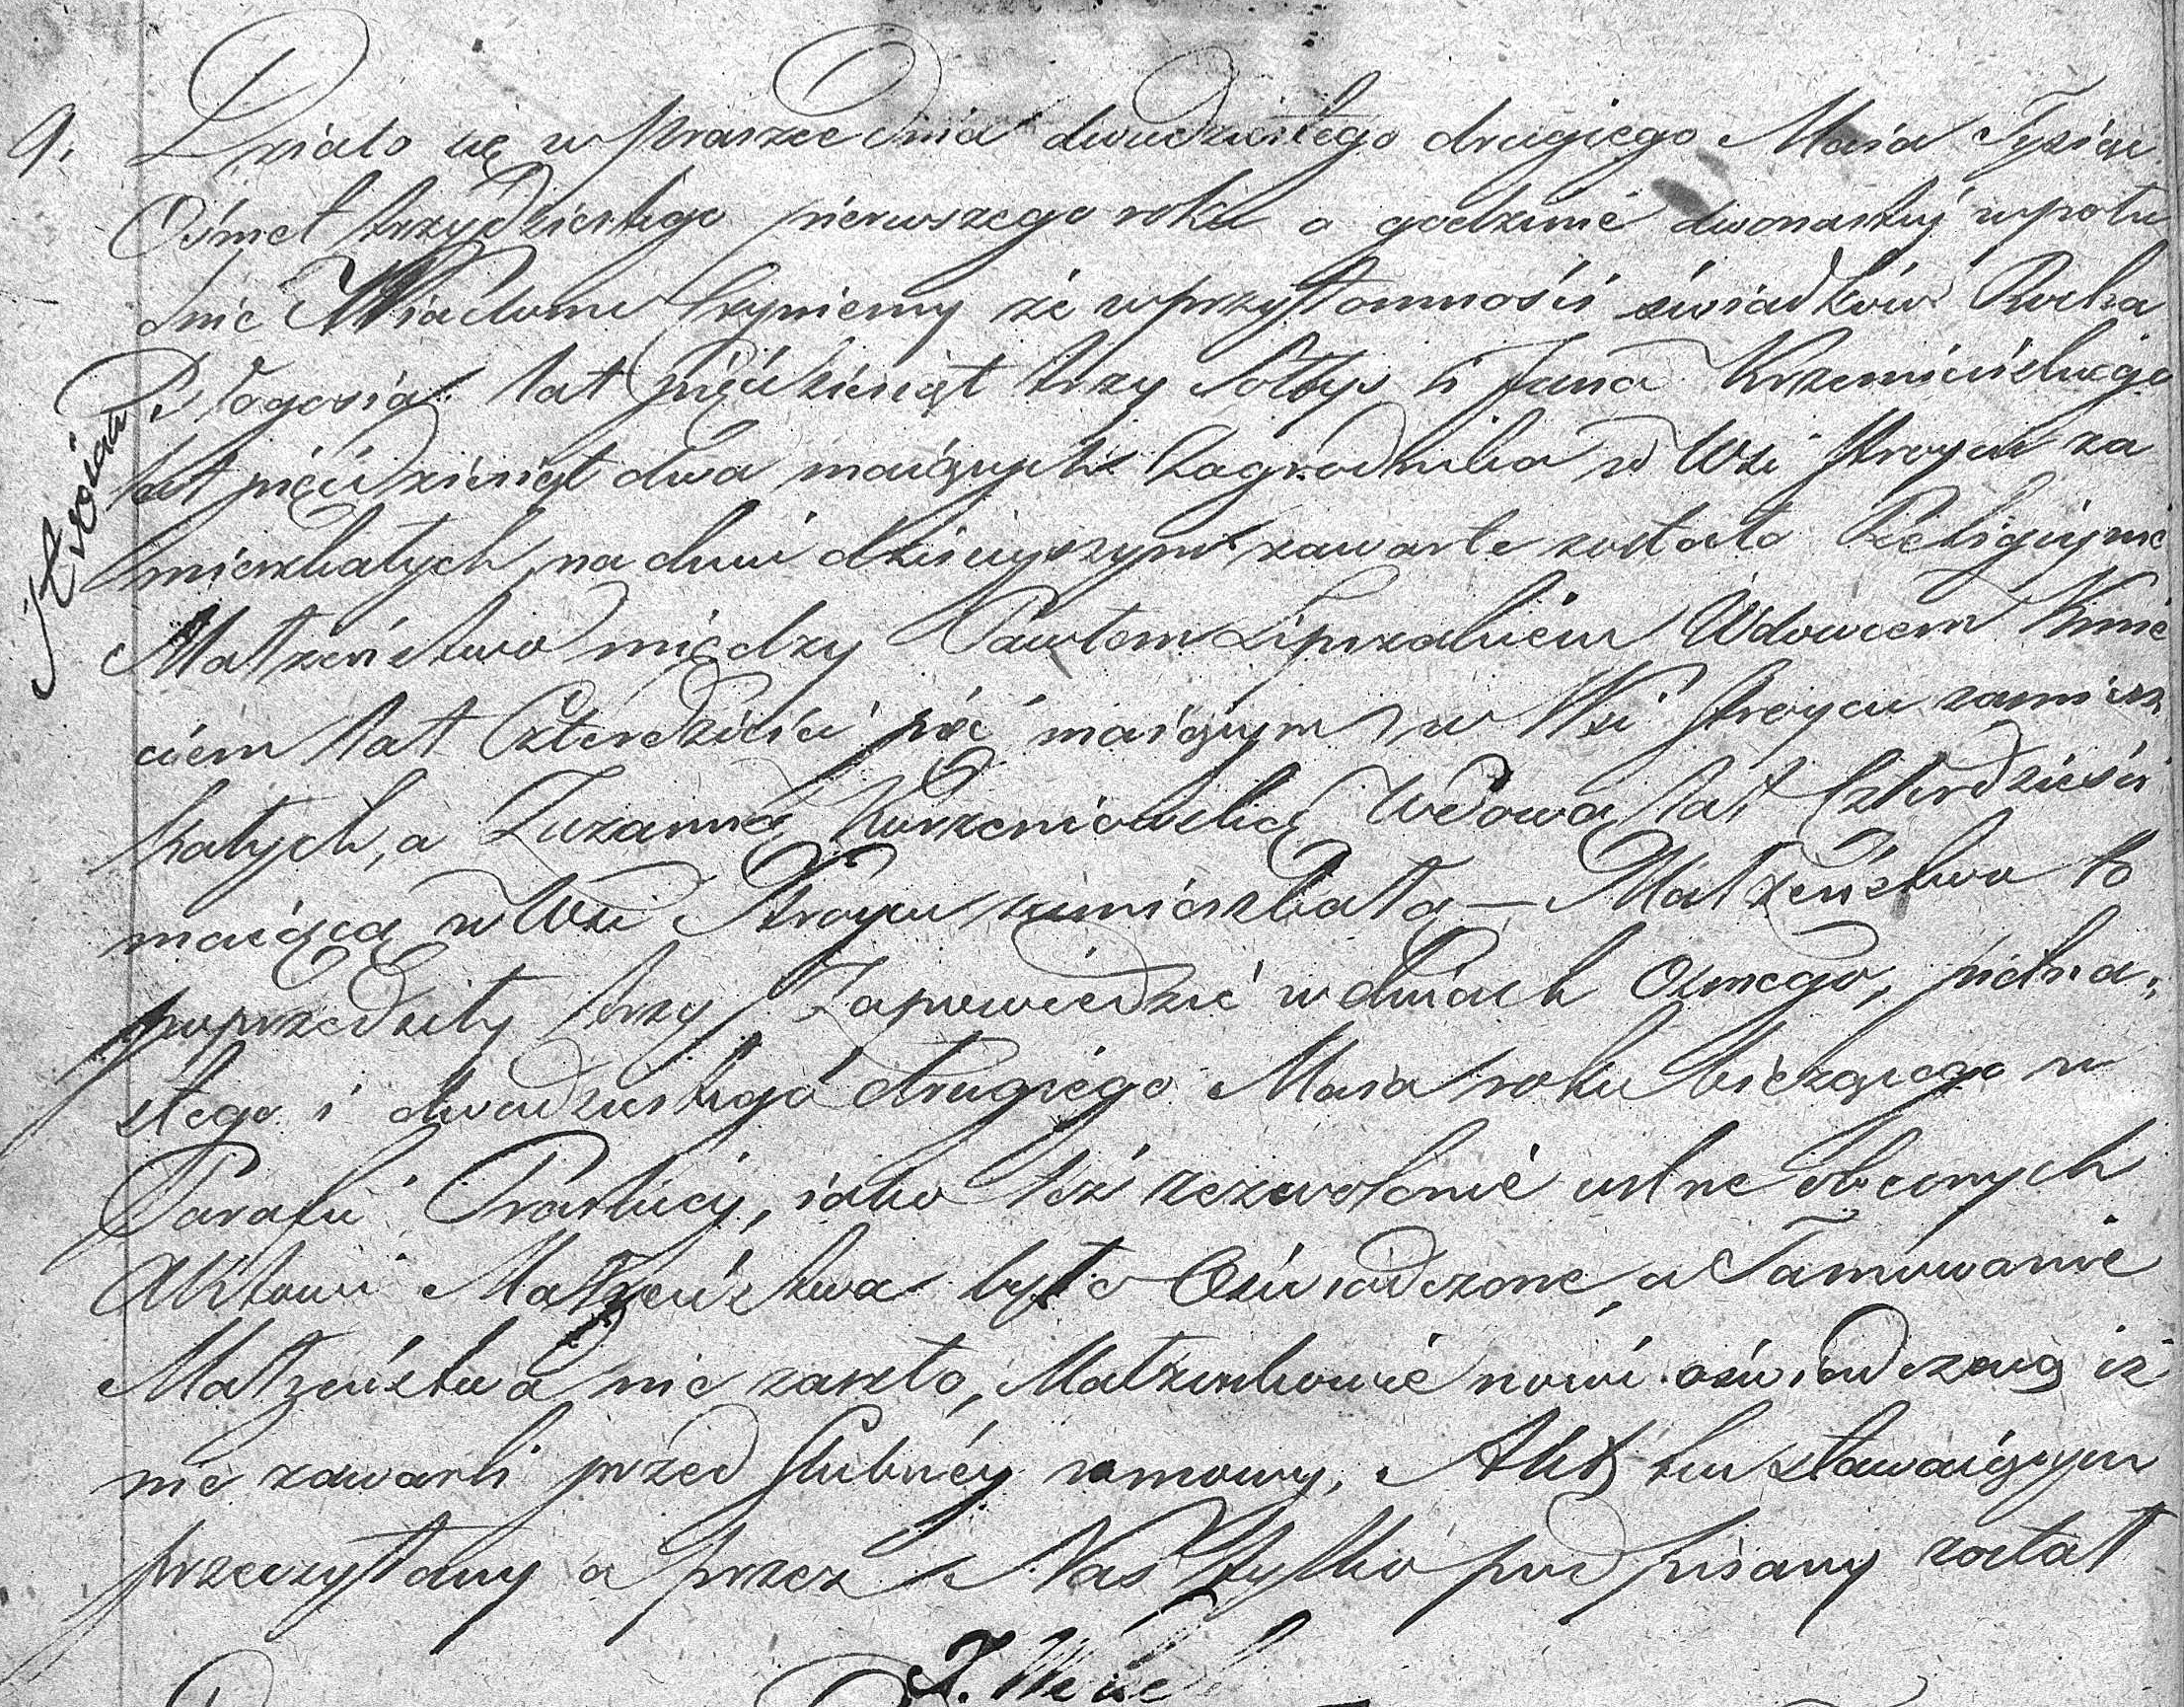 9. Działo się w Praszce dnia dwudziestego drugiego Maia Tysiąc
Ośmset trzydziestego pierwszego roku o godzinie dwonastej w połu
dnie Wiadomo Czyniemy że w przytomności świadków Rocha
lat pięćdziesiąt trzy Sołtys i Jana
lat pięćdziesiąt dwa maiących Zagrodnika w Wsi Stroycu za
mieszkałych, na dniu dzisieyszym zawarte zostało Religiyne
Małżeństwo między Pawłem Wdowcem Kmie
ciem lat Czterdzieści pięć maiącym w Wsi Stroycu zamiesz
kałych, a Zuzanną Wdową lat Czterdzieści
maiącą w Wsi Stroycu zamieszkałą — Małżeństwo to
poprzedziły trzy Zapowiedzie w dniach Osmego, pietna„
stego i dwudziestego drugiego Maia roku bieżącego w
Parafii Praskiey, iako też zezwolenie ustne obecnych
Aktowi Małżeństwa było Oświadczone, a Tamowanie
Małżeństwa nie zaszło, Małżonkowie nowi oświadczaią iż
nie zawarli przed Slubney umowy. Akt ten stawaiącym
przeczytany a przez Nas tylko podpisany został